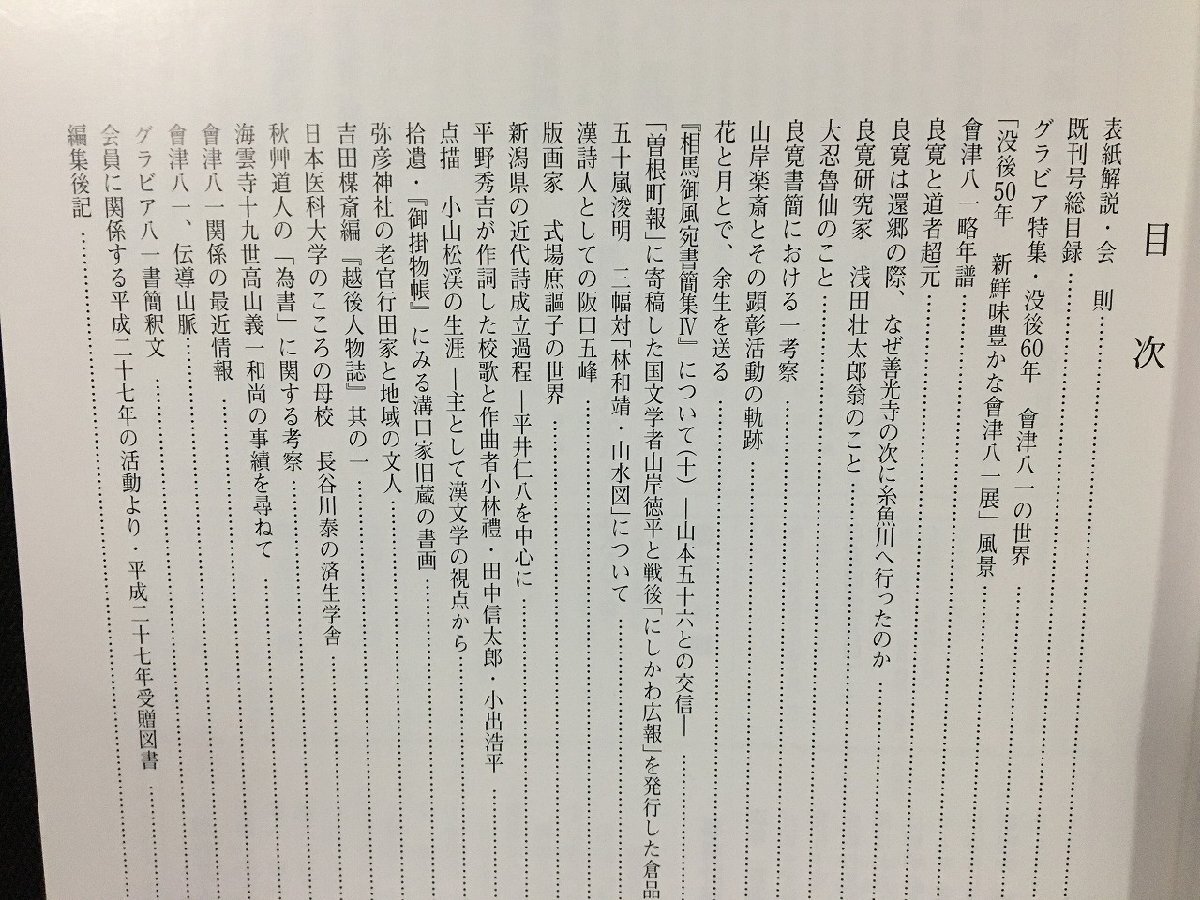 目次
表紙解説・会　則
既刊号総目録
グラビア特集・没後60年　會津八一の世界
「没後50年　新鮮味豊かな會津八一展」風景
會津八一略年譜
良寛と道者超元
良寛は還郷の際、なぜ善光寺の次に糸魚川へ行ったのか
良寛研究家　浅田壮太郎翁のこと
大忍魯仙のこと
良寛書簡における一考察
山岸楽斎とその顕彰活動の軌跡
花と月とで、余生を送る
『相馬御風宛書簡集Ⅳ』について(十)　―山本五十六との交信―
「曽根町報」に寄稿した国文学者山岸徳平と戦後「にしかわ広報」を発行した倉品
五十嵐浚明　二幅対「林和靖・山水図」について
漢詩人としての阪口五峰
版画家　式場庶謳子の世界
新潟県の近代詩成立過程―平井仁八を中心に
平野秀吉が作詞した校歌と作曲者小林禮・田中信太郎・小出浩平
点描　小山松渓の生涯―主として漢文学の視点から
拾遺・『御掛物帳』にみる溝口家旧蔵の書画
弥彦神社の老官行田家と地域の文人
吉田楳斎編『越後人物誌』其の一
日本医科大学のこころの母校　長谷川泰の済生学舎
秋艸道人の「為書」に関する考察
海雲寺十九世高山義一和尚の事績を尋ねて
會津八一関係の最近情報
會津八一、伝導山脈
グラビア八一書簡釈文
会員に関係する平成二十七年の活動より・平成二十七年受贈図書
編集後記